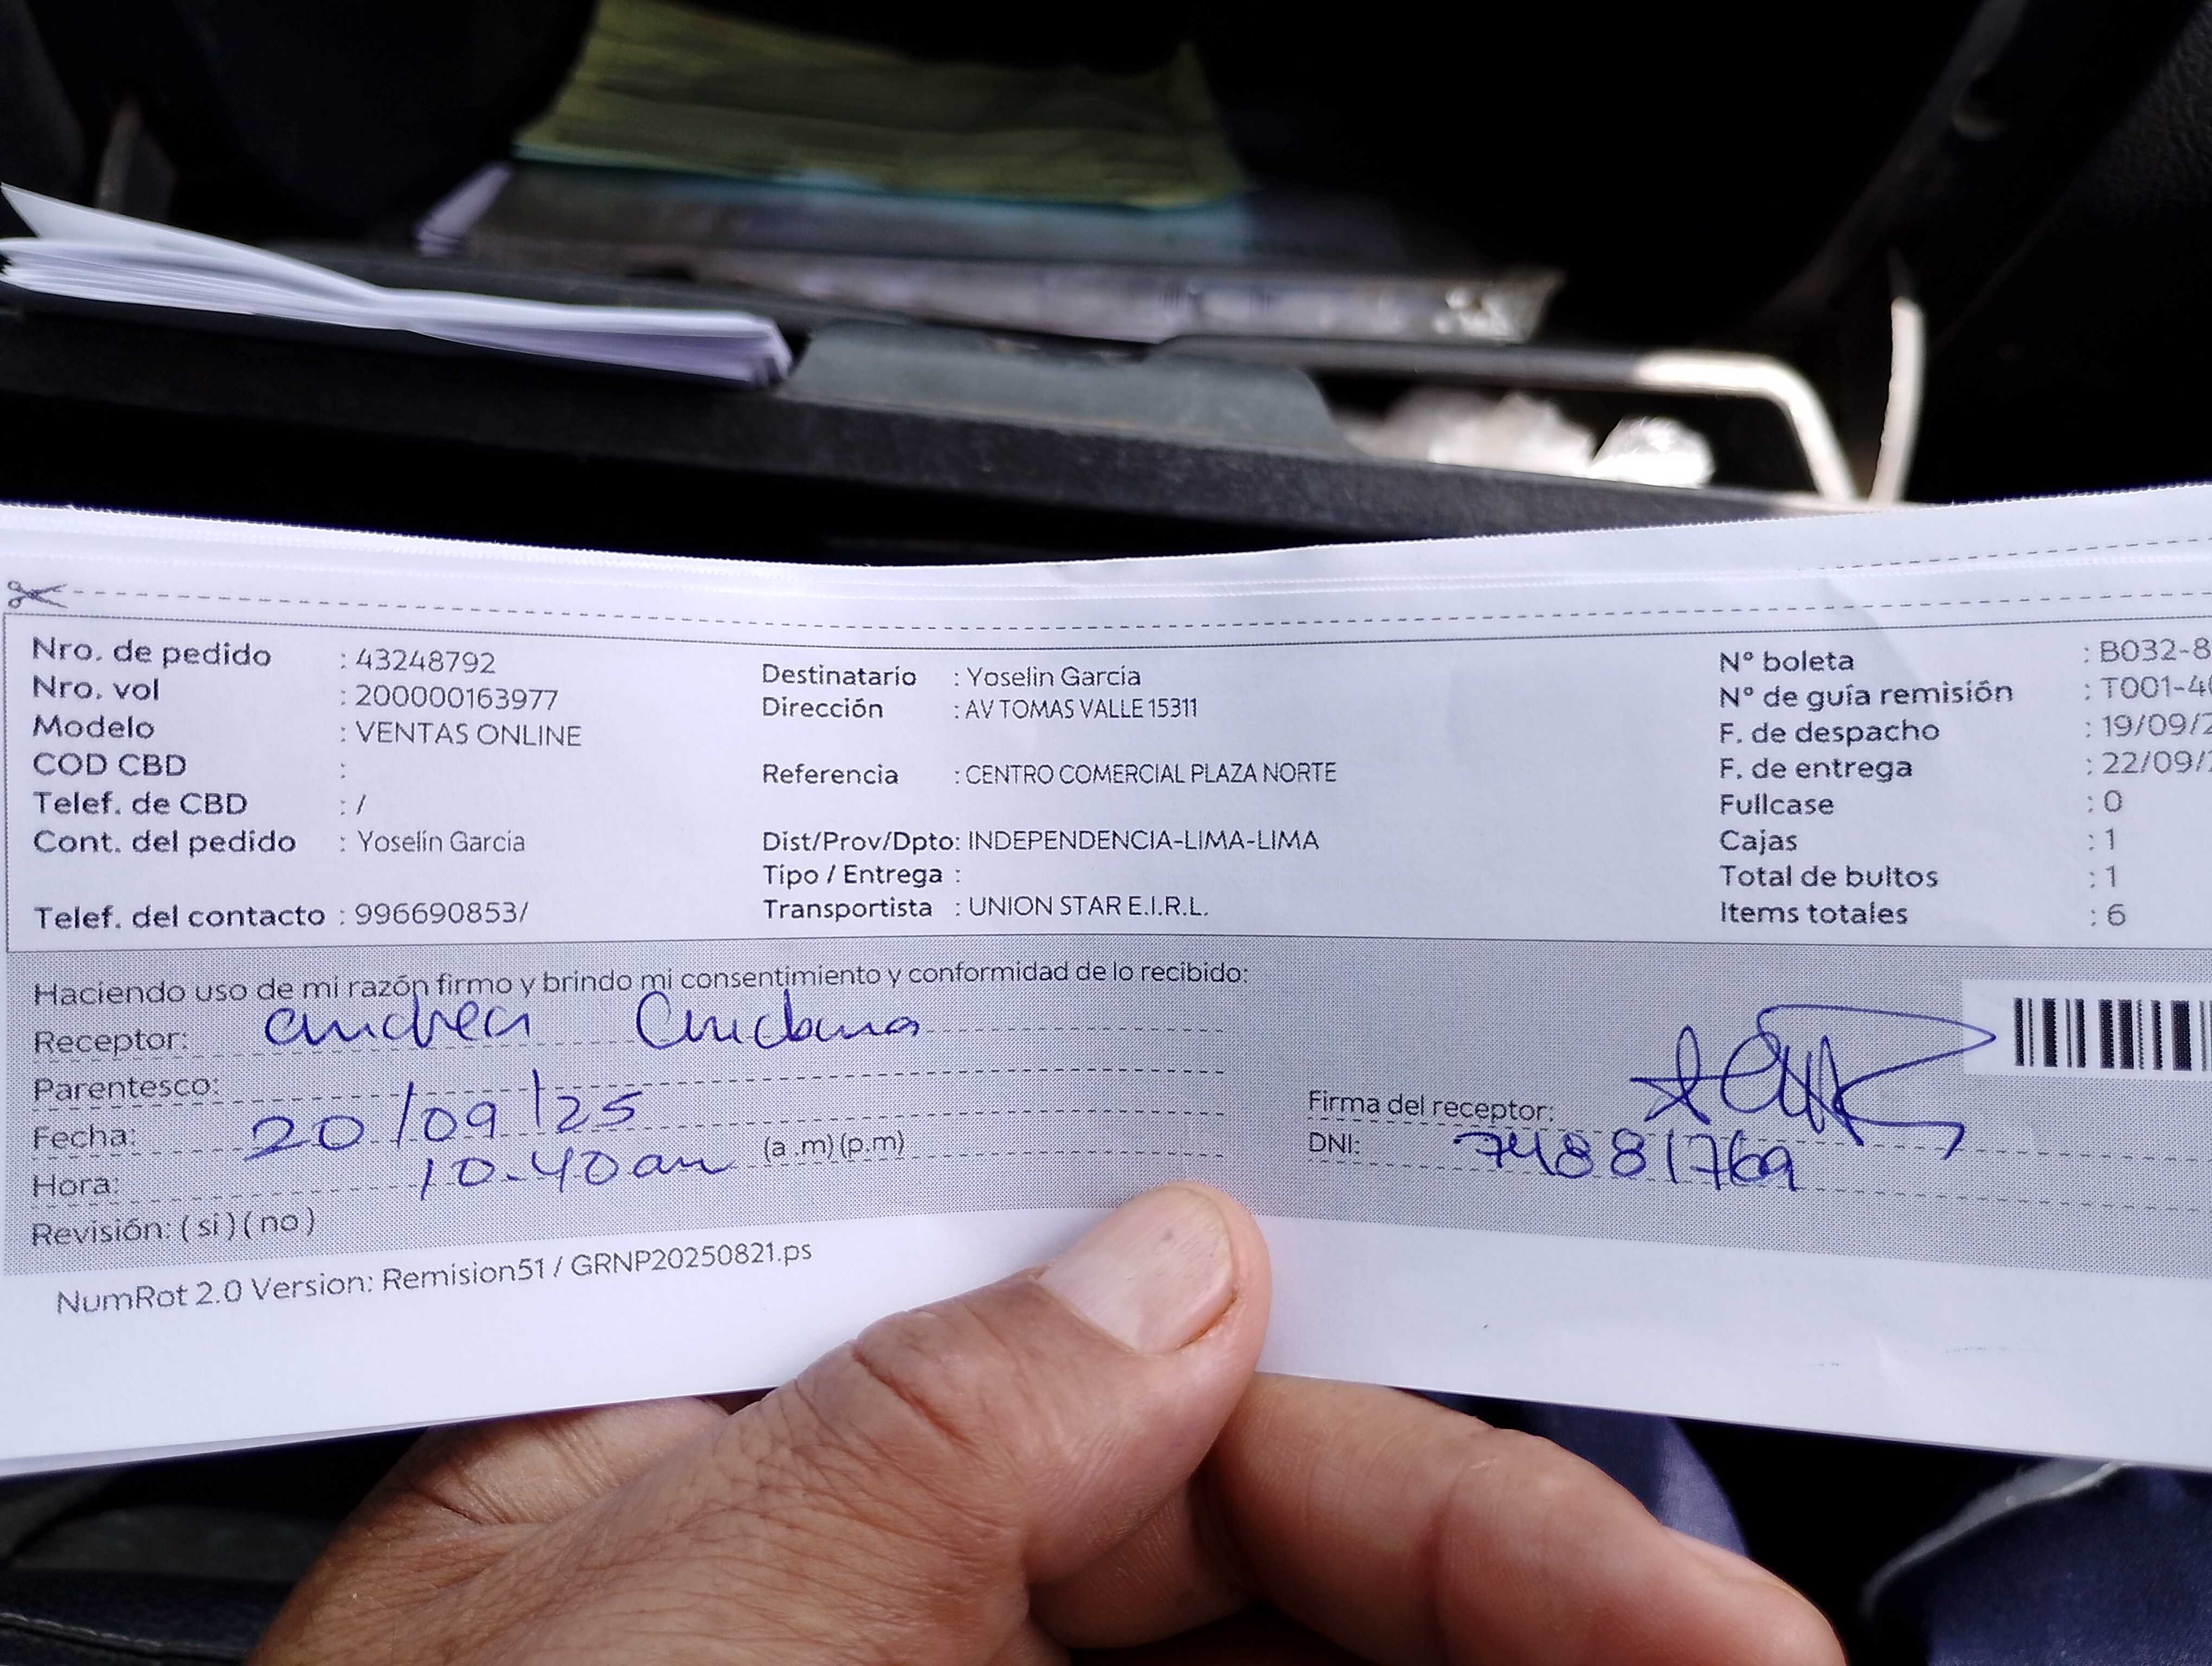 Nro. de pedido : 43248792
Nro. vol : 200000163977
Modelo : VENTAS ONLINE
COD CBD :
Telef. de CBD : /
Cont. del pedido : Yoselin Garcia
Telef. del contacto : 996690853/
Destinatario : Yoselin Garcia
Dirección : AV TOMAS VALLE 15311
Referencia : CENTRO COMERCIAL PLAZA NORTE
Dist/Prov/Dpto: INDEPENDENCIA-LIMA-LIMA
Tipo / Entrega :
Transportista : UNION STAR E.I.R.L.
N° boleta : B032-8
N° de guía remisión : T001-4
F. de despacho : 19/09/2
F. de entrega : 22/09/
Fullcase : 0
Cajas : 1
Total de bultos : 1
Items totales : 6
Haciendo uso de mi razón firmo y brindo mi consentimiento y conformidad de lo recibido:
Receptor: Andrea
Parentesco:
Fecha: 20/09/25
Hora: 10.40am (a .m) (p.m)
Revisión: ( si ) ( no )
Firma del receptor:
DNI: 74881769
NumRot 2.0 Version: Remision51 / GRNP20250821.ps